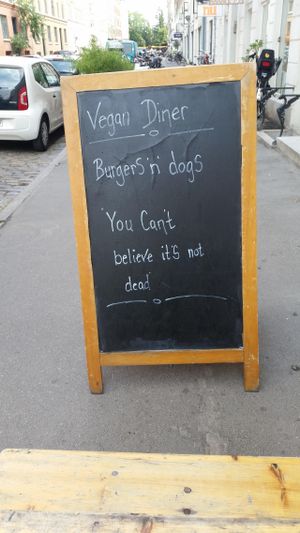 Vegan Diner
Burgers'n' dogs
"You Can't
believe it's not
dead"